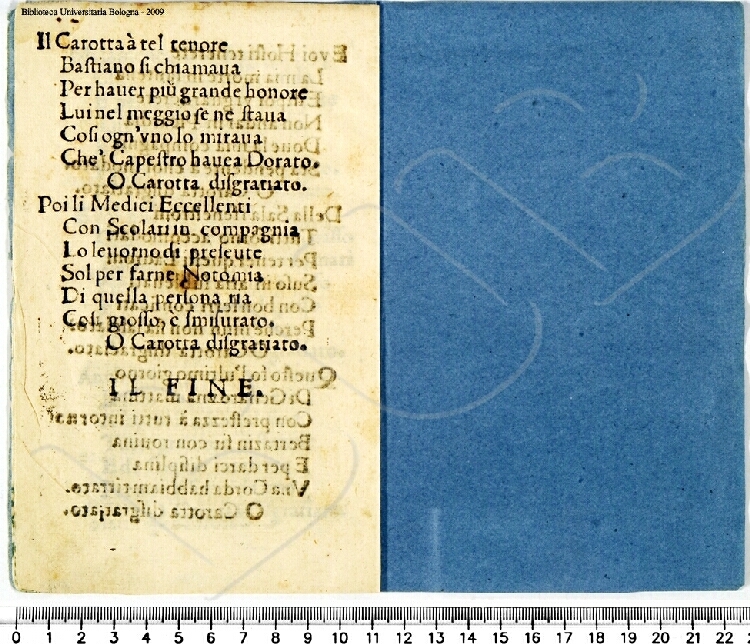 Biblioteca Universitaria Bologna - 2009
Il Carotta à tel tenore
Bastiano si chiamaua
Per hauer più grande honore
Lui nel meggio se ne staua
Cosi ogn'vno lo miraua
Che' Capestro hauea Dorato.
O Carotta disgratiato.
Poi li Medici Eccellenti
Con Scolari in compagnia
Lo leuorno di presente
Sol per farne Notomia
Di quella persona ria
Cosi grosso, è smisurato.
O Carotta disgratiato.
IL FINE.
0 1 2 3 4 5 6 7 8 9 10 11 12 13 14 15 16 17 18 19 20 21 22